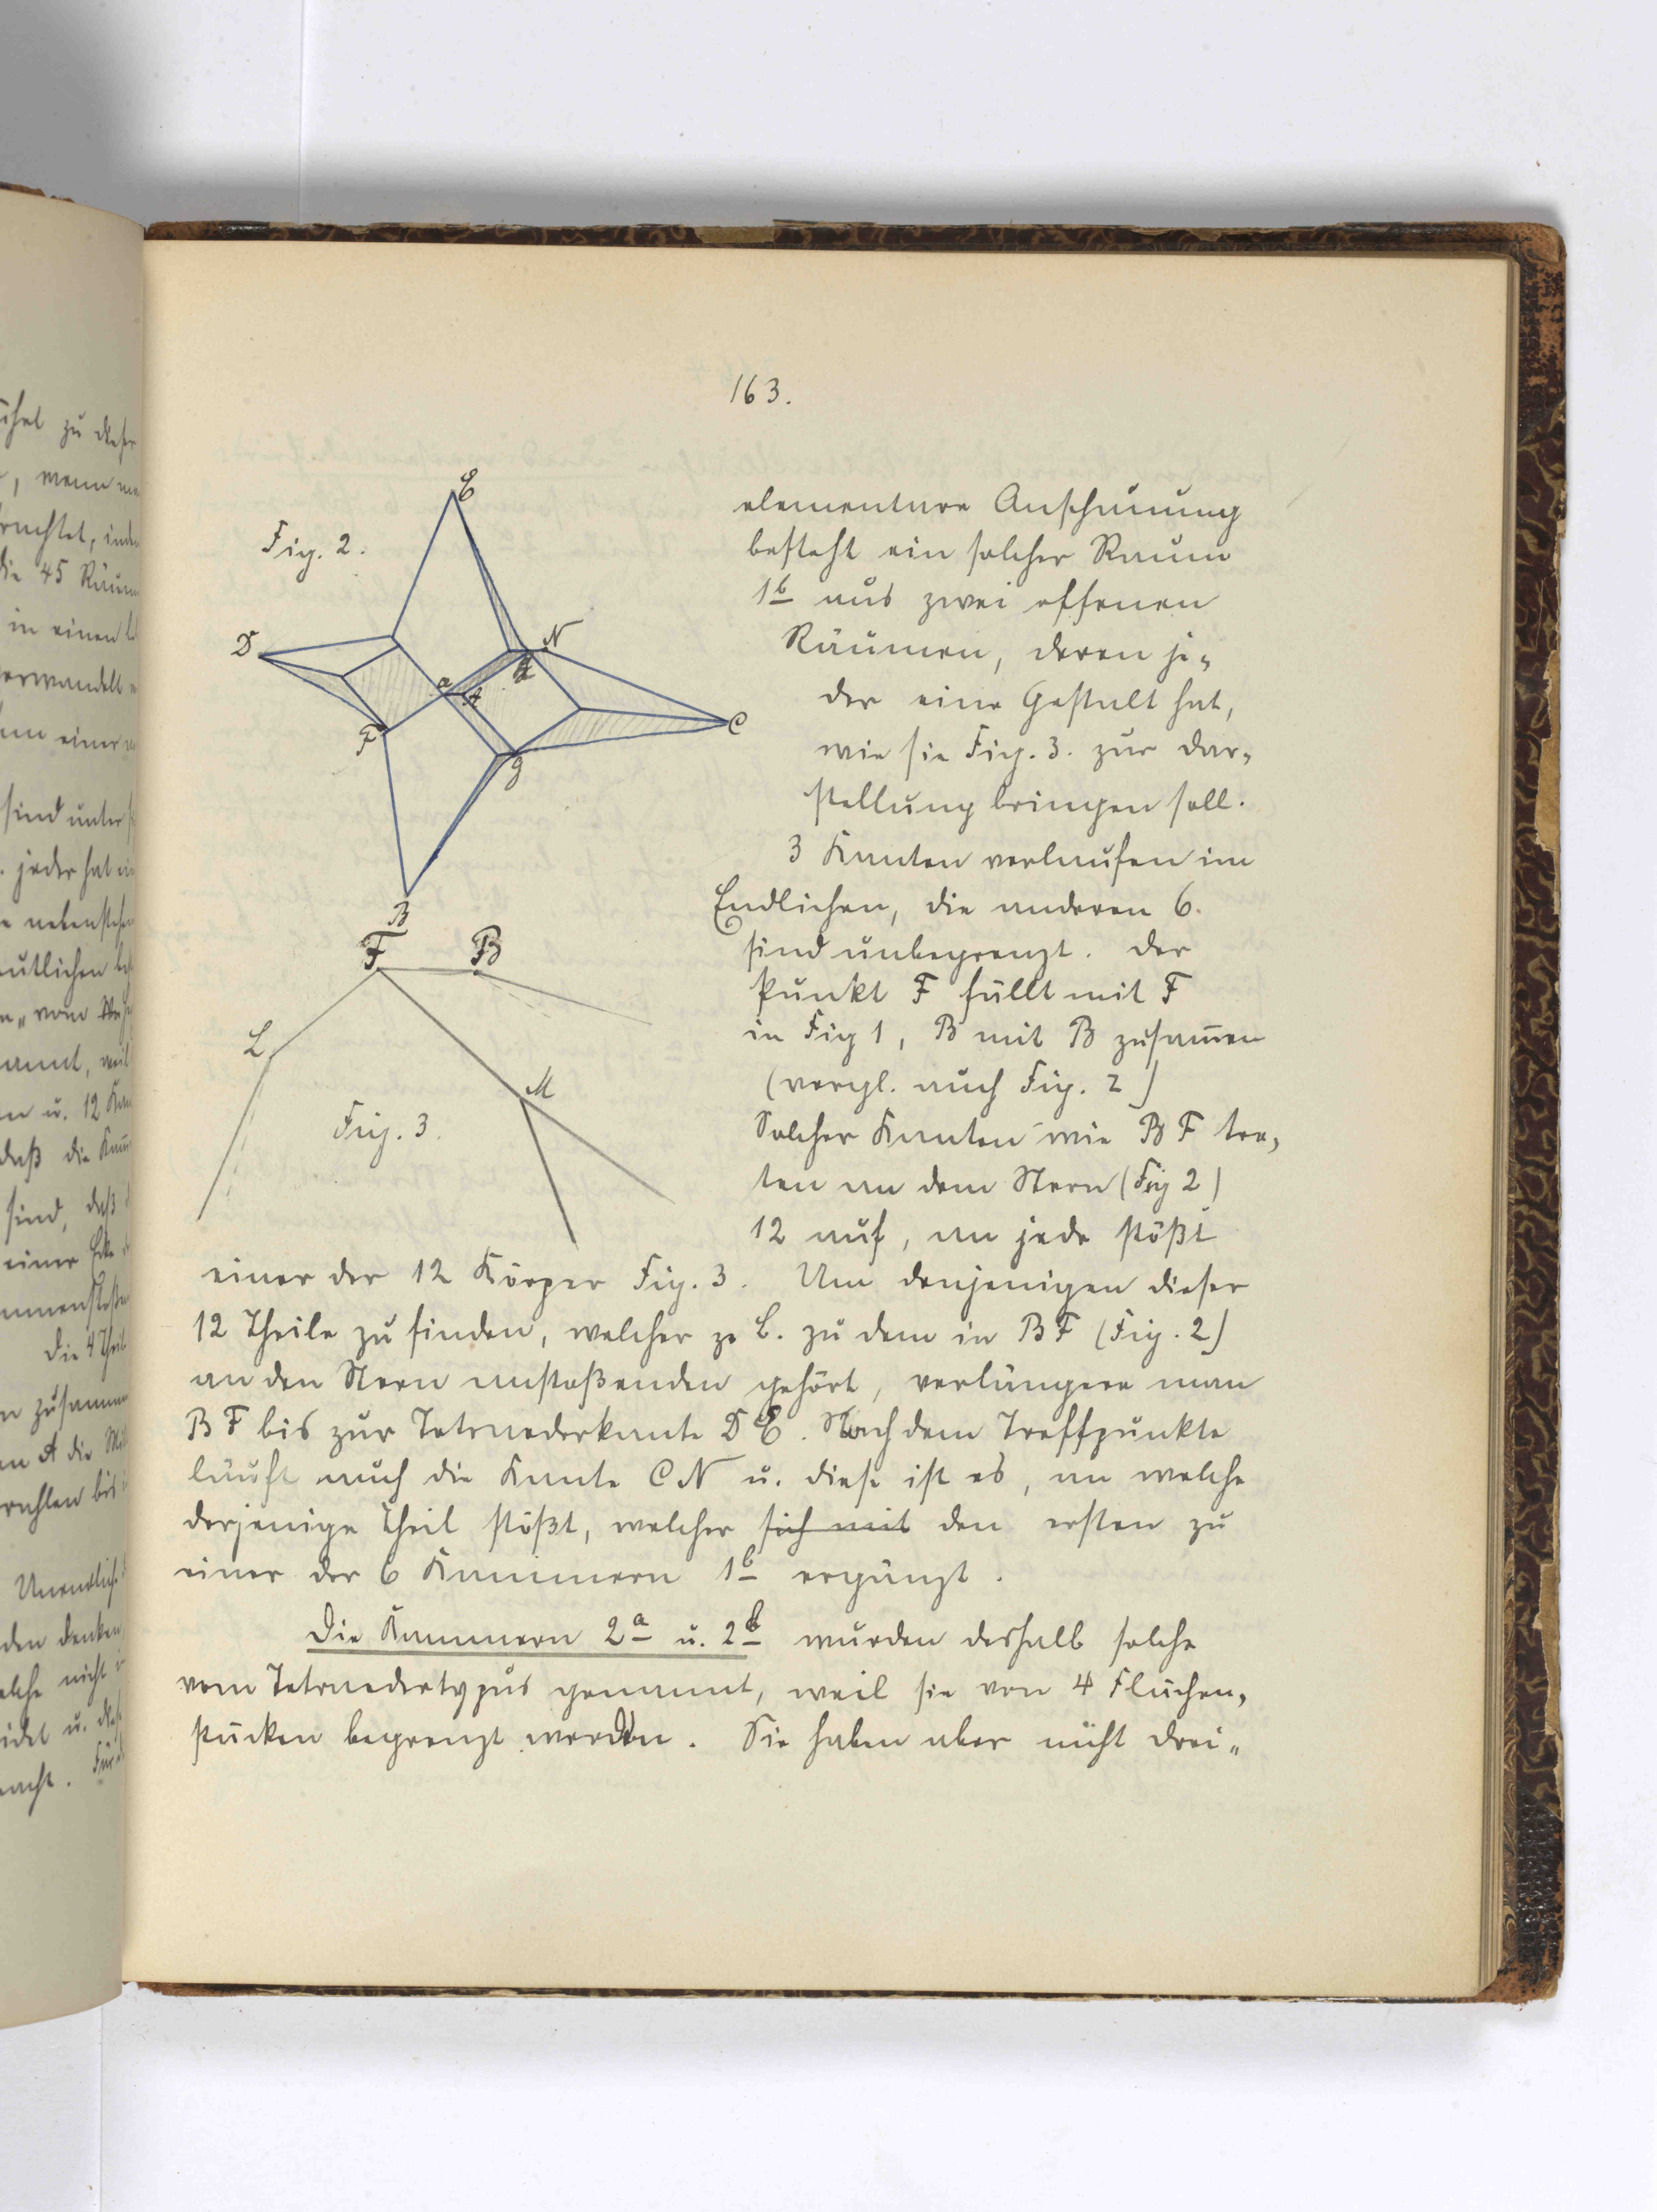 163.
Fig. 2.
E
D
N
a
A
H
F
C
g
B
elementare Anschauung
besteht ein solcher Raum
1b aus zwei offenen
Räumen, deren je-
der eine Gestalt hat,
wie sie Fig. 3. zur Dar-
stellung bringen soll.
3 Kanten verlaufen im
Endlichen, die anderen 6.
sind unbegrenzt. Der
Punkt F fällt mit F
in Fig 1, B mit B zusam̄en
(vergl. auch Fig. 2)
Solcher Kanten wie BF tre-
ten an dem Stern (Fig 2)
12 auf, an jede stößt
F
B
L
M
Fig. 3.
einer der 12 Körper Fig. 3. Um denjenigen dieser
12 Theile zu finden, welcher z. B. zu dem in BF (Fig. 2)
an den Stern anstoßenden gehört, verlängere man
BF bis zur Tetraederkante DE. Nach dem Treffpunkte
läuft auch die Kante CN u. diese ist es, an welche
derjenige Theil stößt, welcher sich mit den ersten zu
einer der 6 Kammern 1b ergänzt.
Die Kammern 2a u. 2b wurden deshalb solche
vom Tetraedertypus genannt, weil sie von 4 Flächen-
stücken begrenzt werden. Sie haben aber nicht drei-
zu dieser
, wenn
die 45
in einen
einer
sind unter
jeder hat
vom
u. 12
daß die
sind, daß
einer Ecke
Die 4
zusammen
A die
den denken
nicht
u.